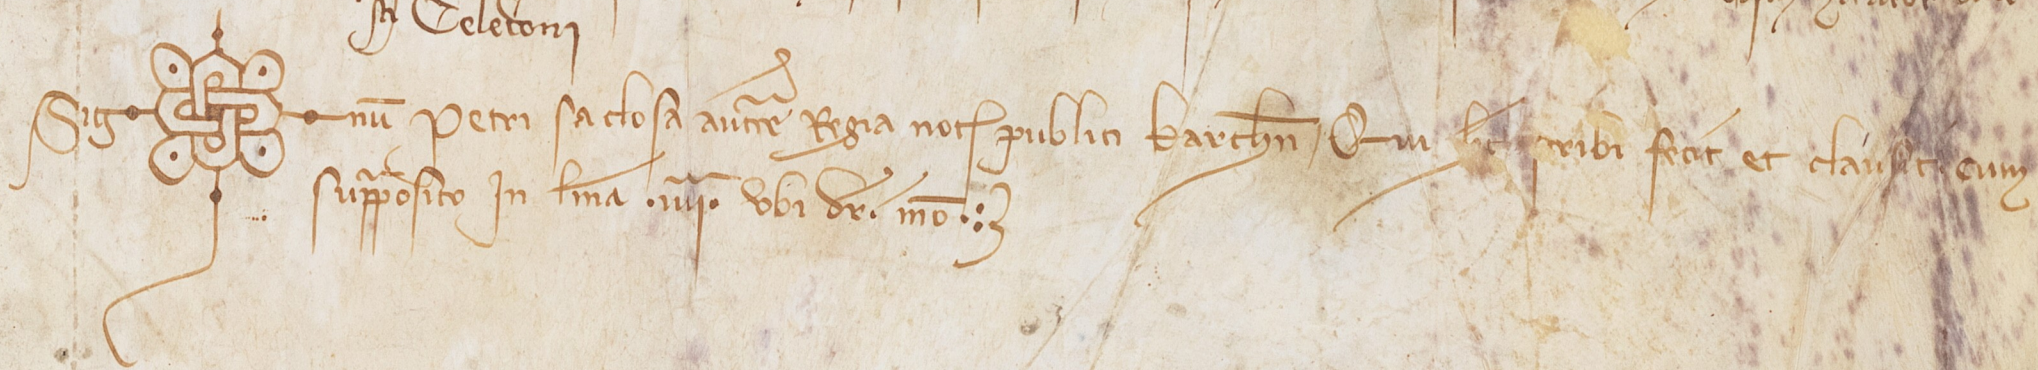 sci Celedoni
Sig num Petri saclosa auctte Regia notʃ publici barchn Qui hec scribi fecit et clausit cum
supposito In linea .iiii. ubi dr mo